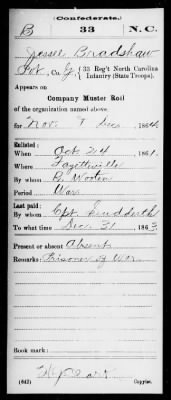 (Confederate.)
B 33 N.C.
Jessee Bradshaw
Pvt., Co. G, 33 Reg't North Carolina
Infantry (State Troops).
Appears on
Company Muster Roll
of the organization named above,
for Nov. & Dec., 1864.
Enlisted:
When Oct 24, 1861.
Where Fayettville
By whom B. Wooten
Period War
Last paid:
By whom Cpt. Sudderth
To what time Dec 31, 1863.
Present or absent Absent
Remarks: Prisoner of War
Book mark:
(642) Copyist.